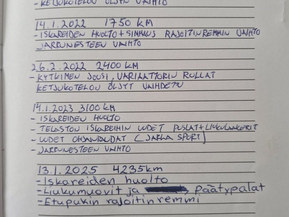 - KETJUKOTELON ÖLJYN VAIHTO
14.1.2022 1750 KM
- ISKAREIDEN HUOLTO + SIMMAUS RAJOITINREMMIN VAIHTO
- JARRUNESTEEN VAIHTO
26.2.2022 2400 KM
- KYTKIMEN JOUSI, VARIAATTORIN RULLAT
KETJUKOTELON ÖLJYT VAIHDETTU
14.1.2023 3100 KM
- ISKAREIDEN HUOLTO
- TELASTON ISKAREIHIN UUDET PUSLAT + LIUKULAAKERIT
- UUDET OHJAINRAUDAT (JARLA SPORT)
- JARRUNESTEEN VAIHTO
13.1.2025 4235km
- Iskareiden huolto
- Liukumuovit ja Päätypalat
- Etupukin rajoitinremmi